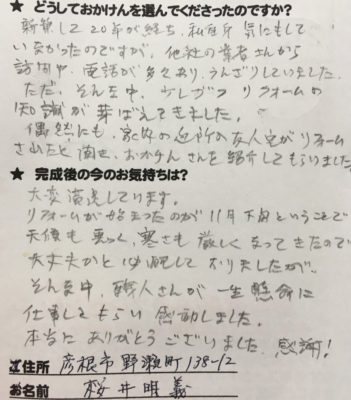 ★ どうしておかけんを選んでくださったのですか？
新築して20年が経ち、私自身 気にもして
いなかったのですが、他社の業者さんから
訪問や、電話が多々あり、うんざりしていました。
ただ、そんな中、少しずつ リフォームの
知識が芽ばえてきました。
偶然にも、家内の近所の友人宅がリフォーム
されたと聞き、おかけんさんを紹介してもらいました。
★ 完成後の今のお気持ちは？
大変満足しています。
リフォームが始まったのが 11月下旬ということで
天候も悪く、寒さも厳しくなってきたので
大丈夫かと心配しておりましたが、
そんな中、職人さんが 一生懸命に
仕事してもらい 感動しました。
本当にありがとうございました。感謝！
ご住所 彦根市野瀬町138-12
お名前 桜井明義